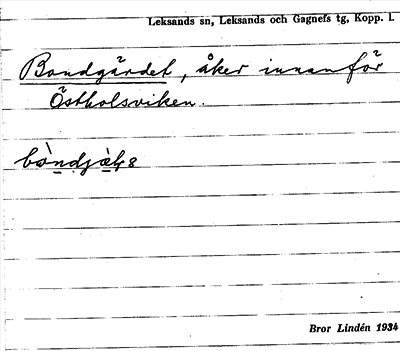 Leksands sn, Leksands och Gagnefs tg, Kopp. l.
Bondgärdet, åker innanför
Östholsviken.
Bror Lindén 1934